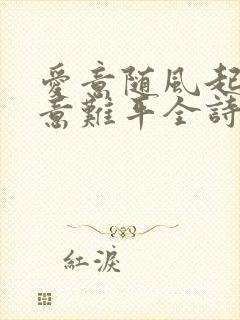 愛意随風起
意難平全詩
紅淚